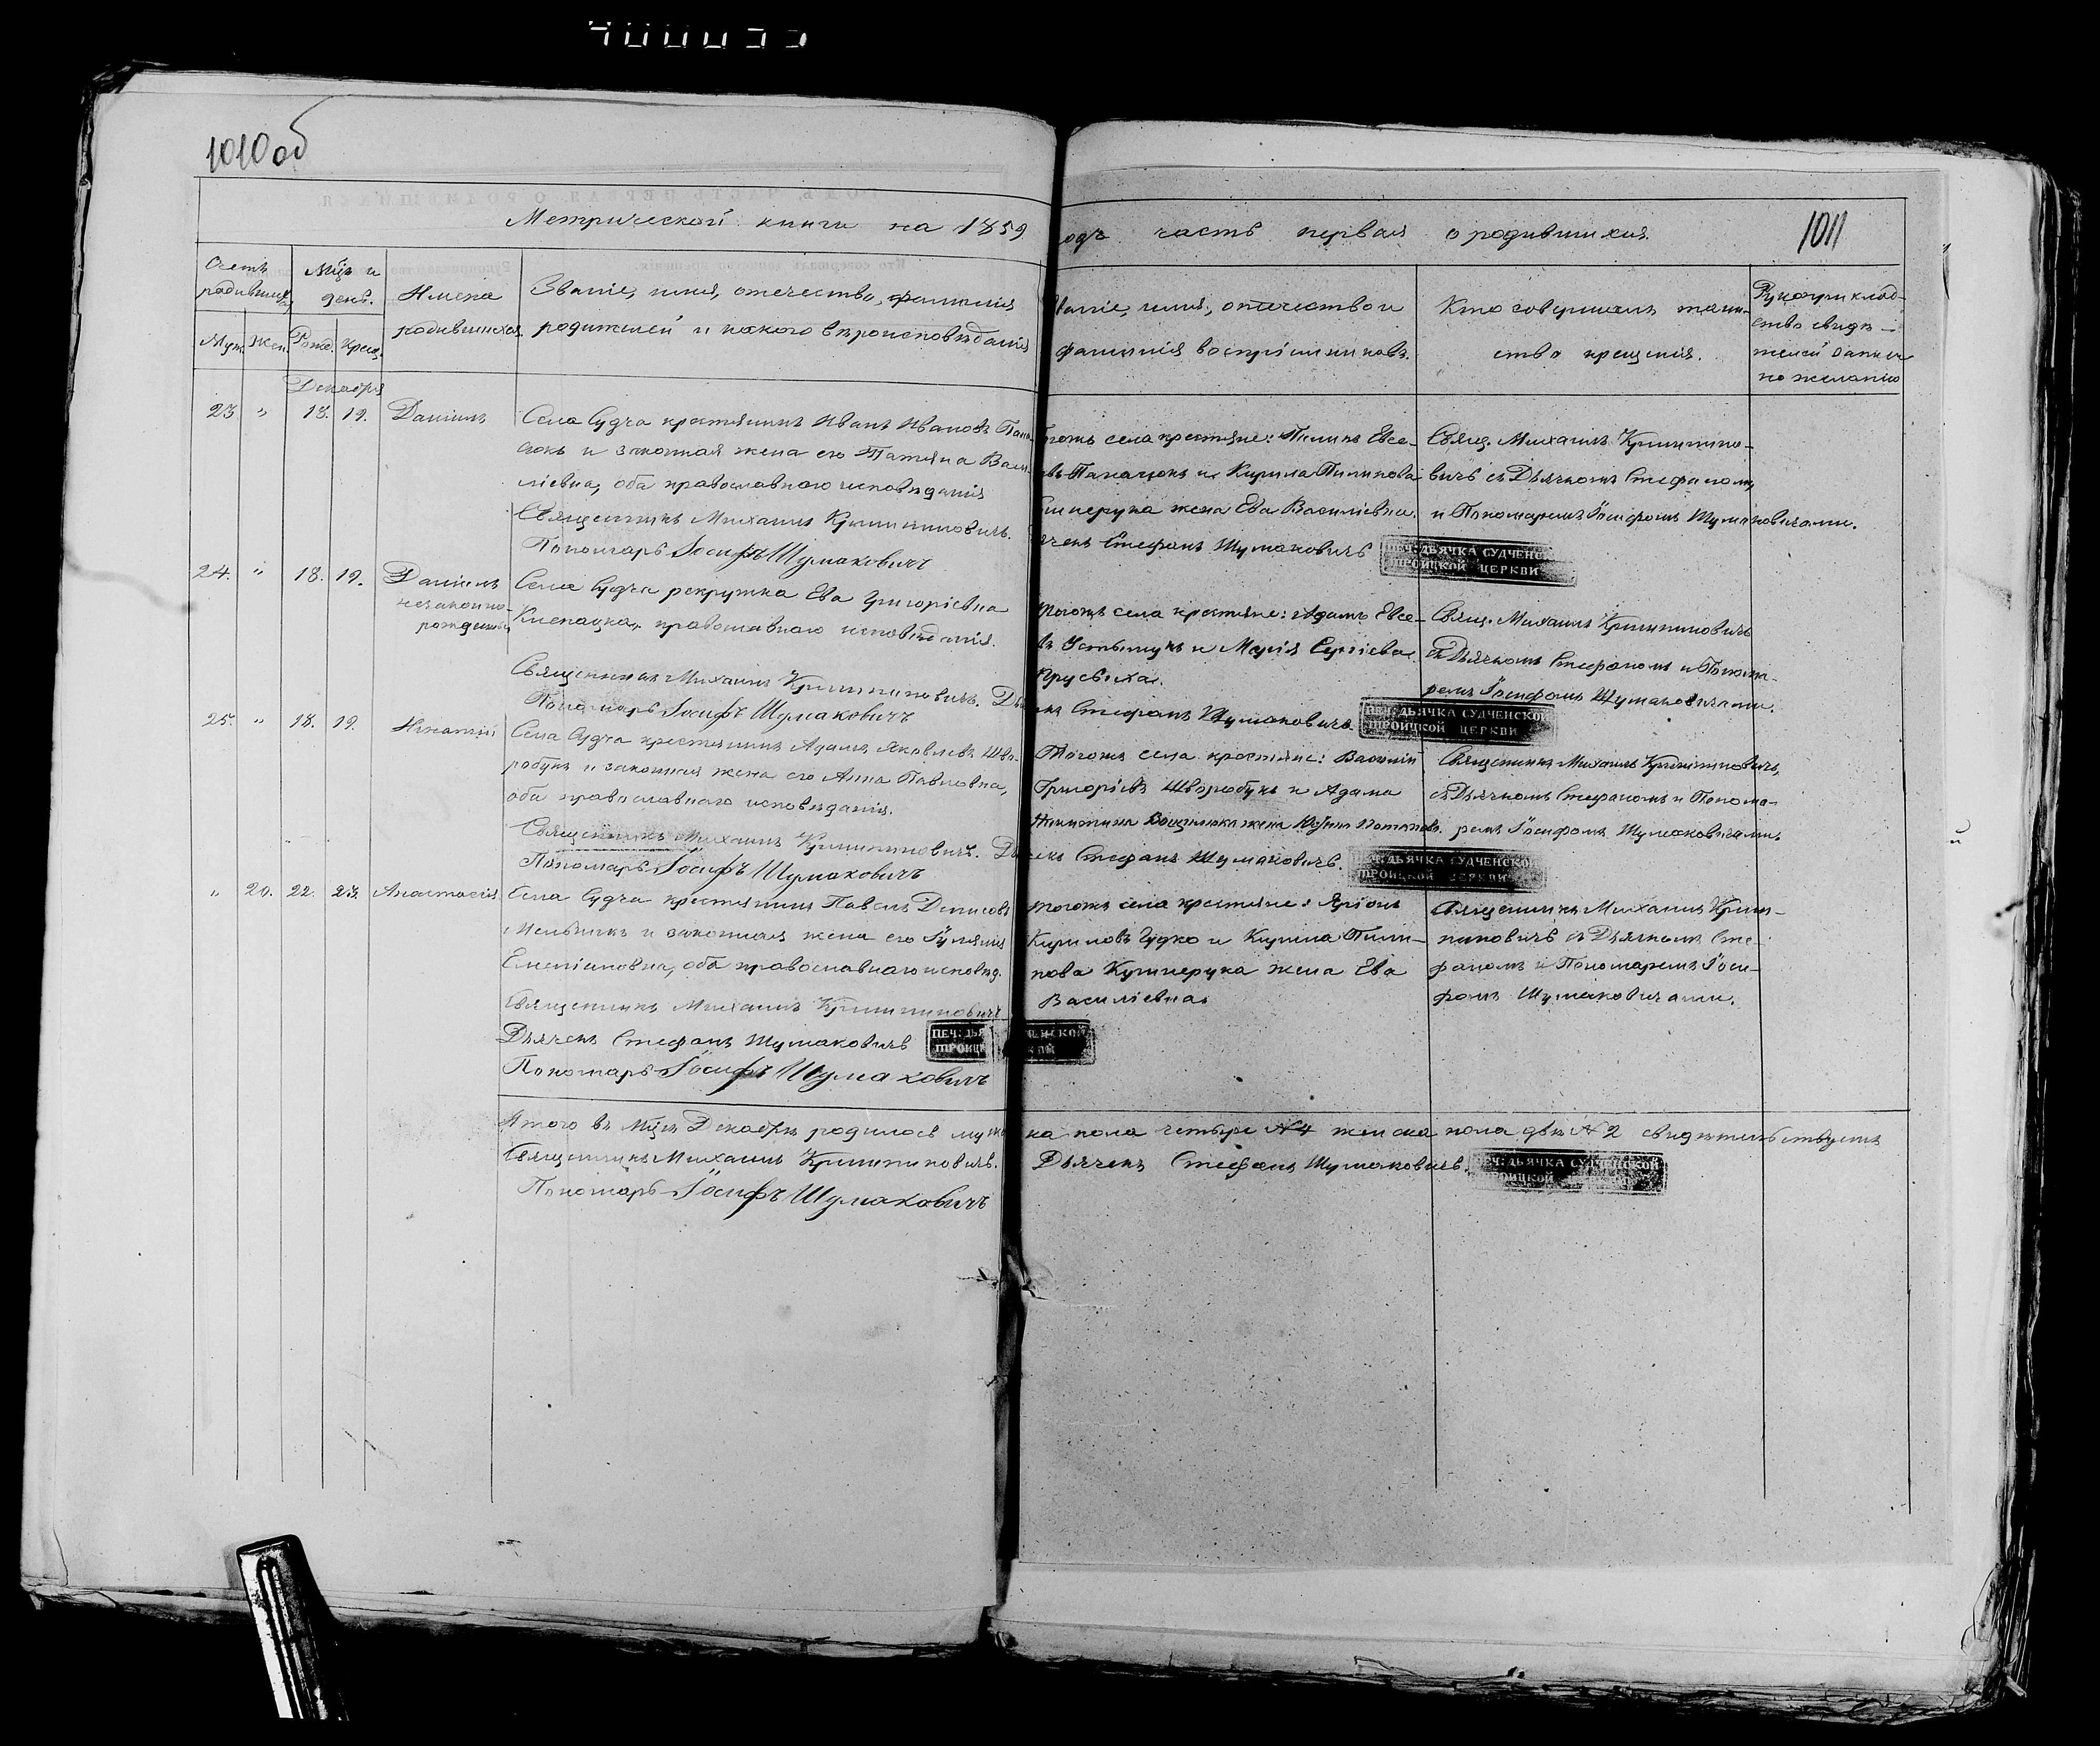 1010об
Метрической книги на 1859
одъ часть первая о родившихся.
1011
Счетъ родивших.
Мцъ и день.
Имена родившихся
Званіе, имя, отечество, фамилія
родителей и какого вѣроисповѣданія
Званіе, имя, отечество и
фамилія воспріемниковъ.
Кто совершалъ таин-
ство крещенія.
Рукоприклад-
ство свидѣ-
телей записи
по желанію
Муж. Жен. Рожд. Крещ.
Декабря
23 " 18. 19. Даніилъ
Села Судча крестьянинъ Иванъ Ивановъ Пана-
сюкъ и законная жена его Татьяна Васи-
ліевна, оба православнаго исповѣданія
Священникъ Михаилъ Криштиновичъ.
Пономарь Іосифъ Шумаковичъ
тогожъ села крестьяне: Пилипъ Евсе-
въ Панасюкъ и Кирила Пилипова
Кушнерука жена Ева Василіевна.
ячекъ Стефанъ Шумаковичъ
ПЕЧ: ДЬЯЧКА СУДЧЕНСКОЙ
ТРОИЦКОЙ ЦЕРКВИ
Свящ. Михаилъ Криштино-
вичъ съ Дьячкомъ Стефаномъ
и Пономаремъ Іосифомъ Шумаковичами.
24. " 18. 19. Даніилъ
незаконно-
рожденный
Села Судча рекрутка Ева Григоріевна
православнаго исповѣданія.
Священникъ Михаилъ Криштиновичъ. Дья
Пономарь Іосифъ Шумаковичъ
тогожъ села крестьяне: Адамъ Евсе-
въ Устымукъ и Марія Сергіева
чекъ Стефанъ Шумаковичъ.
ПЕЧ: ДЬЯЧКА СУДЧЕНСКОЙ
ТРОИЦКОЙ ЦЕРКВИ
Свящ. Михаилъ Криштиновичъ
съ Дьячкомъ Стефаномъ и Понома-
ремъ Іосифомъ Шумаковичами.
25. " 18. 19. Игнатій
Села Судча крестьянинъ Адамъ Яковлевъ Шво-
робукъ и законная жена его Анна Павловна,
оба православнаго исповѣданія.
Священникъ Михаилъ Криштиновичъ. Дь
Пономарь Іосифъ Шумаковичъ
Тогожъ села крестьяне: Василій
Григоріевъ Шворобукъ и Адама
жена
ячекъ Стефанъ Шумаковичъ.
ПЕЧ: ДЬЯЧКА СУДЧЕНСКОЙ
ТРОИЦКОЙ ЦЕРКВИ
Священникъ Михаилъ Криштиновичъ,
съ Дьячкомъ Стефаномъ и Понома-
ремъ Іосифомъ Шумаковичами.
" 20. 22. 23. Анастасія
Села Судча крестьянинъ Павелъ Денисовъ
Мельникъ и законная жена его Іуліянія
Емеліановна, оба православнаго исповѣд.
Священникъ Михаилъ Криштиновичъ
Дьячекъ Стефанъ Шумаковичъ
Пономарь Іосифъ Шумаковичъ
тогожъ села крестьяне:
Кириловъ Гудко и Кирила Пили-
пова Кушнерука жена Ева
Василіевна.
Священникъ Михаилъ Кришти-
новичъ съ Дьячкомъ Сте-
фаномъ и Пономаремъ Іоси-
фомъ Шумаковичами.
Итого въ мцѣ Декабрѣ родилось мужс
ка пола четыре №4 женска пола двѣ №2 свидѣтельствуемъ
Священникъ Михаилъ Криштиновичъ.
Дьячекъ Стефанъ Шумаковичъ.
ПЕЧ: ДЬЯЧКА СУДЧЕНСКОЙ
ТРОИЦКОЙ
Пономарь Іосифъ Шумаковичъ